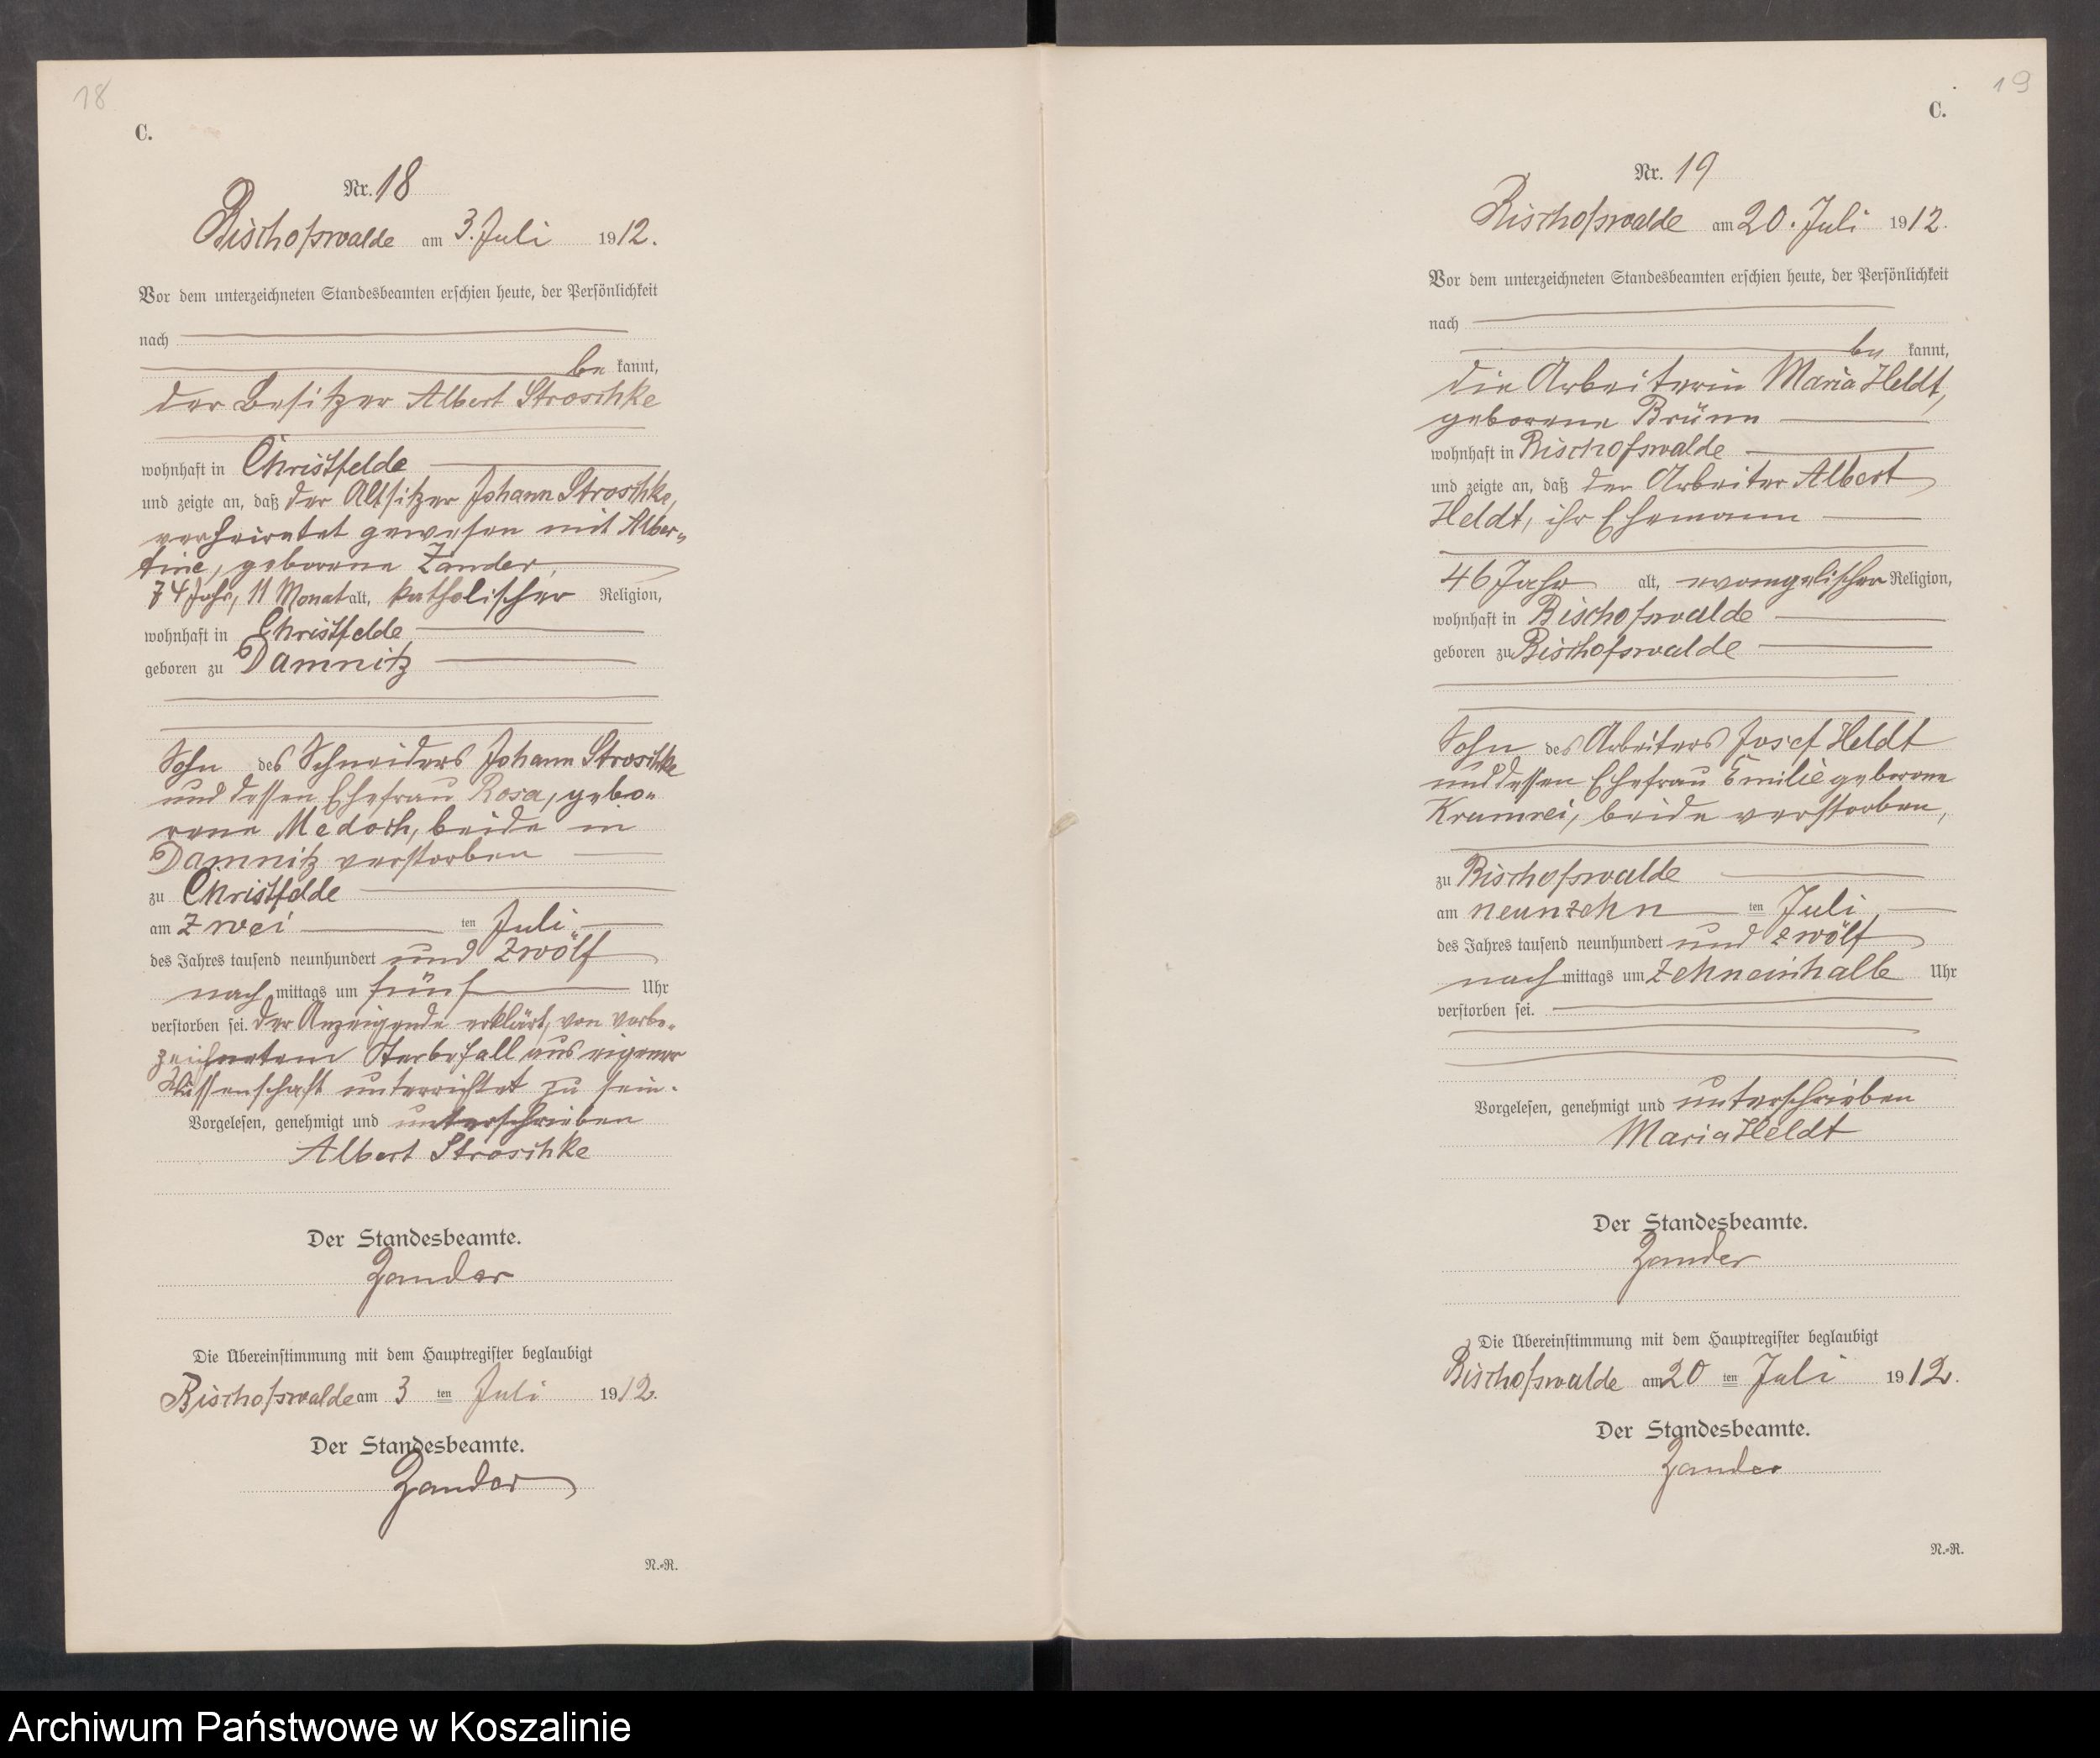 18
C.
Nr. 18
Bischofswalde am 3. Juli 1912.
Vor dem unterzeichneten Standesbeamten erschien heute, der Persönlichkeit
nach
be kannt,
der Besitzer Albert Stroschke
wohnhaft in Christfelde
und zeigte an, daß der Altsitzer Johann Stroschke,
verheiratet gewesen mit Alber-
tine, geborene Zander,
74 Jahr, 11 Monat alt, katholischer Religion,
wohnhaft in Christfelde
geboren zu Damnitz
Sohn des Schneiders Johann Stroschke
und dessen Ehefrau Rosa, gebo-
rene Medoch, beide in
Damnitz verstorben
zu Christfelde
am zwei ten Juli
des Jahres tausend neunhundert und zwölf
nach mittags um fünf Uhr
verstorben sei. Der Anzeigende erklärt, von vorbe-
zeichnetem Sterbefall aus eigener
Wissenschaft unterrichtet zu sein.
Vorgelesen, genehmigt und unterschrieben
Albert Stroschke
Der Standesbeamte.
Zander
Die Übereinstimmung mit dem Hauptregister beglaubigt
Bischofswalde am 3 ten Juli 1912.
Der Standesbeamte.
Zander
N.-R.
19
C.
Nr. 19
Bischofswalde am 20. Juli 1912.
Vor dem unterzeichneten Standesbeamten erschien heute, der Persönlichkeit
nach
be kannt,
die Arbeiterin Maria Heldt,
geborene Brünn
wohnhaft in Bischofswalde
und zeigte an, daß der Arbeiter Albert
Heldt, ihr Ehemann
46 Jahr alt, evangelischer Religion,
wohnhaft in Bischofswalde
geboren zu Bischofswalde
Sohn des Arbeiters Josef Heldt
und dessen Ehefrau Emilie geborene
Krumrei, beide verstorben,
zu Bischofswalde
am neunzehn ten Juli
des Jahres tausend neunhundert und zwölf
nach mittags um zehneinhalb Uhr
verstorben sei.
Vorgelesen, genehmigt und unterschrieben
Maria Heldt
Der Standesbeamte.
Zander
Die Übereinstimmung mit dem Hauptregister beglaubigt
Bischofswalde am 20 ten Juli 1912.
Der Standesbeamte.
Zander
N.-R.
Archiwum Państwowe w Koszalinie